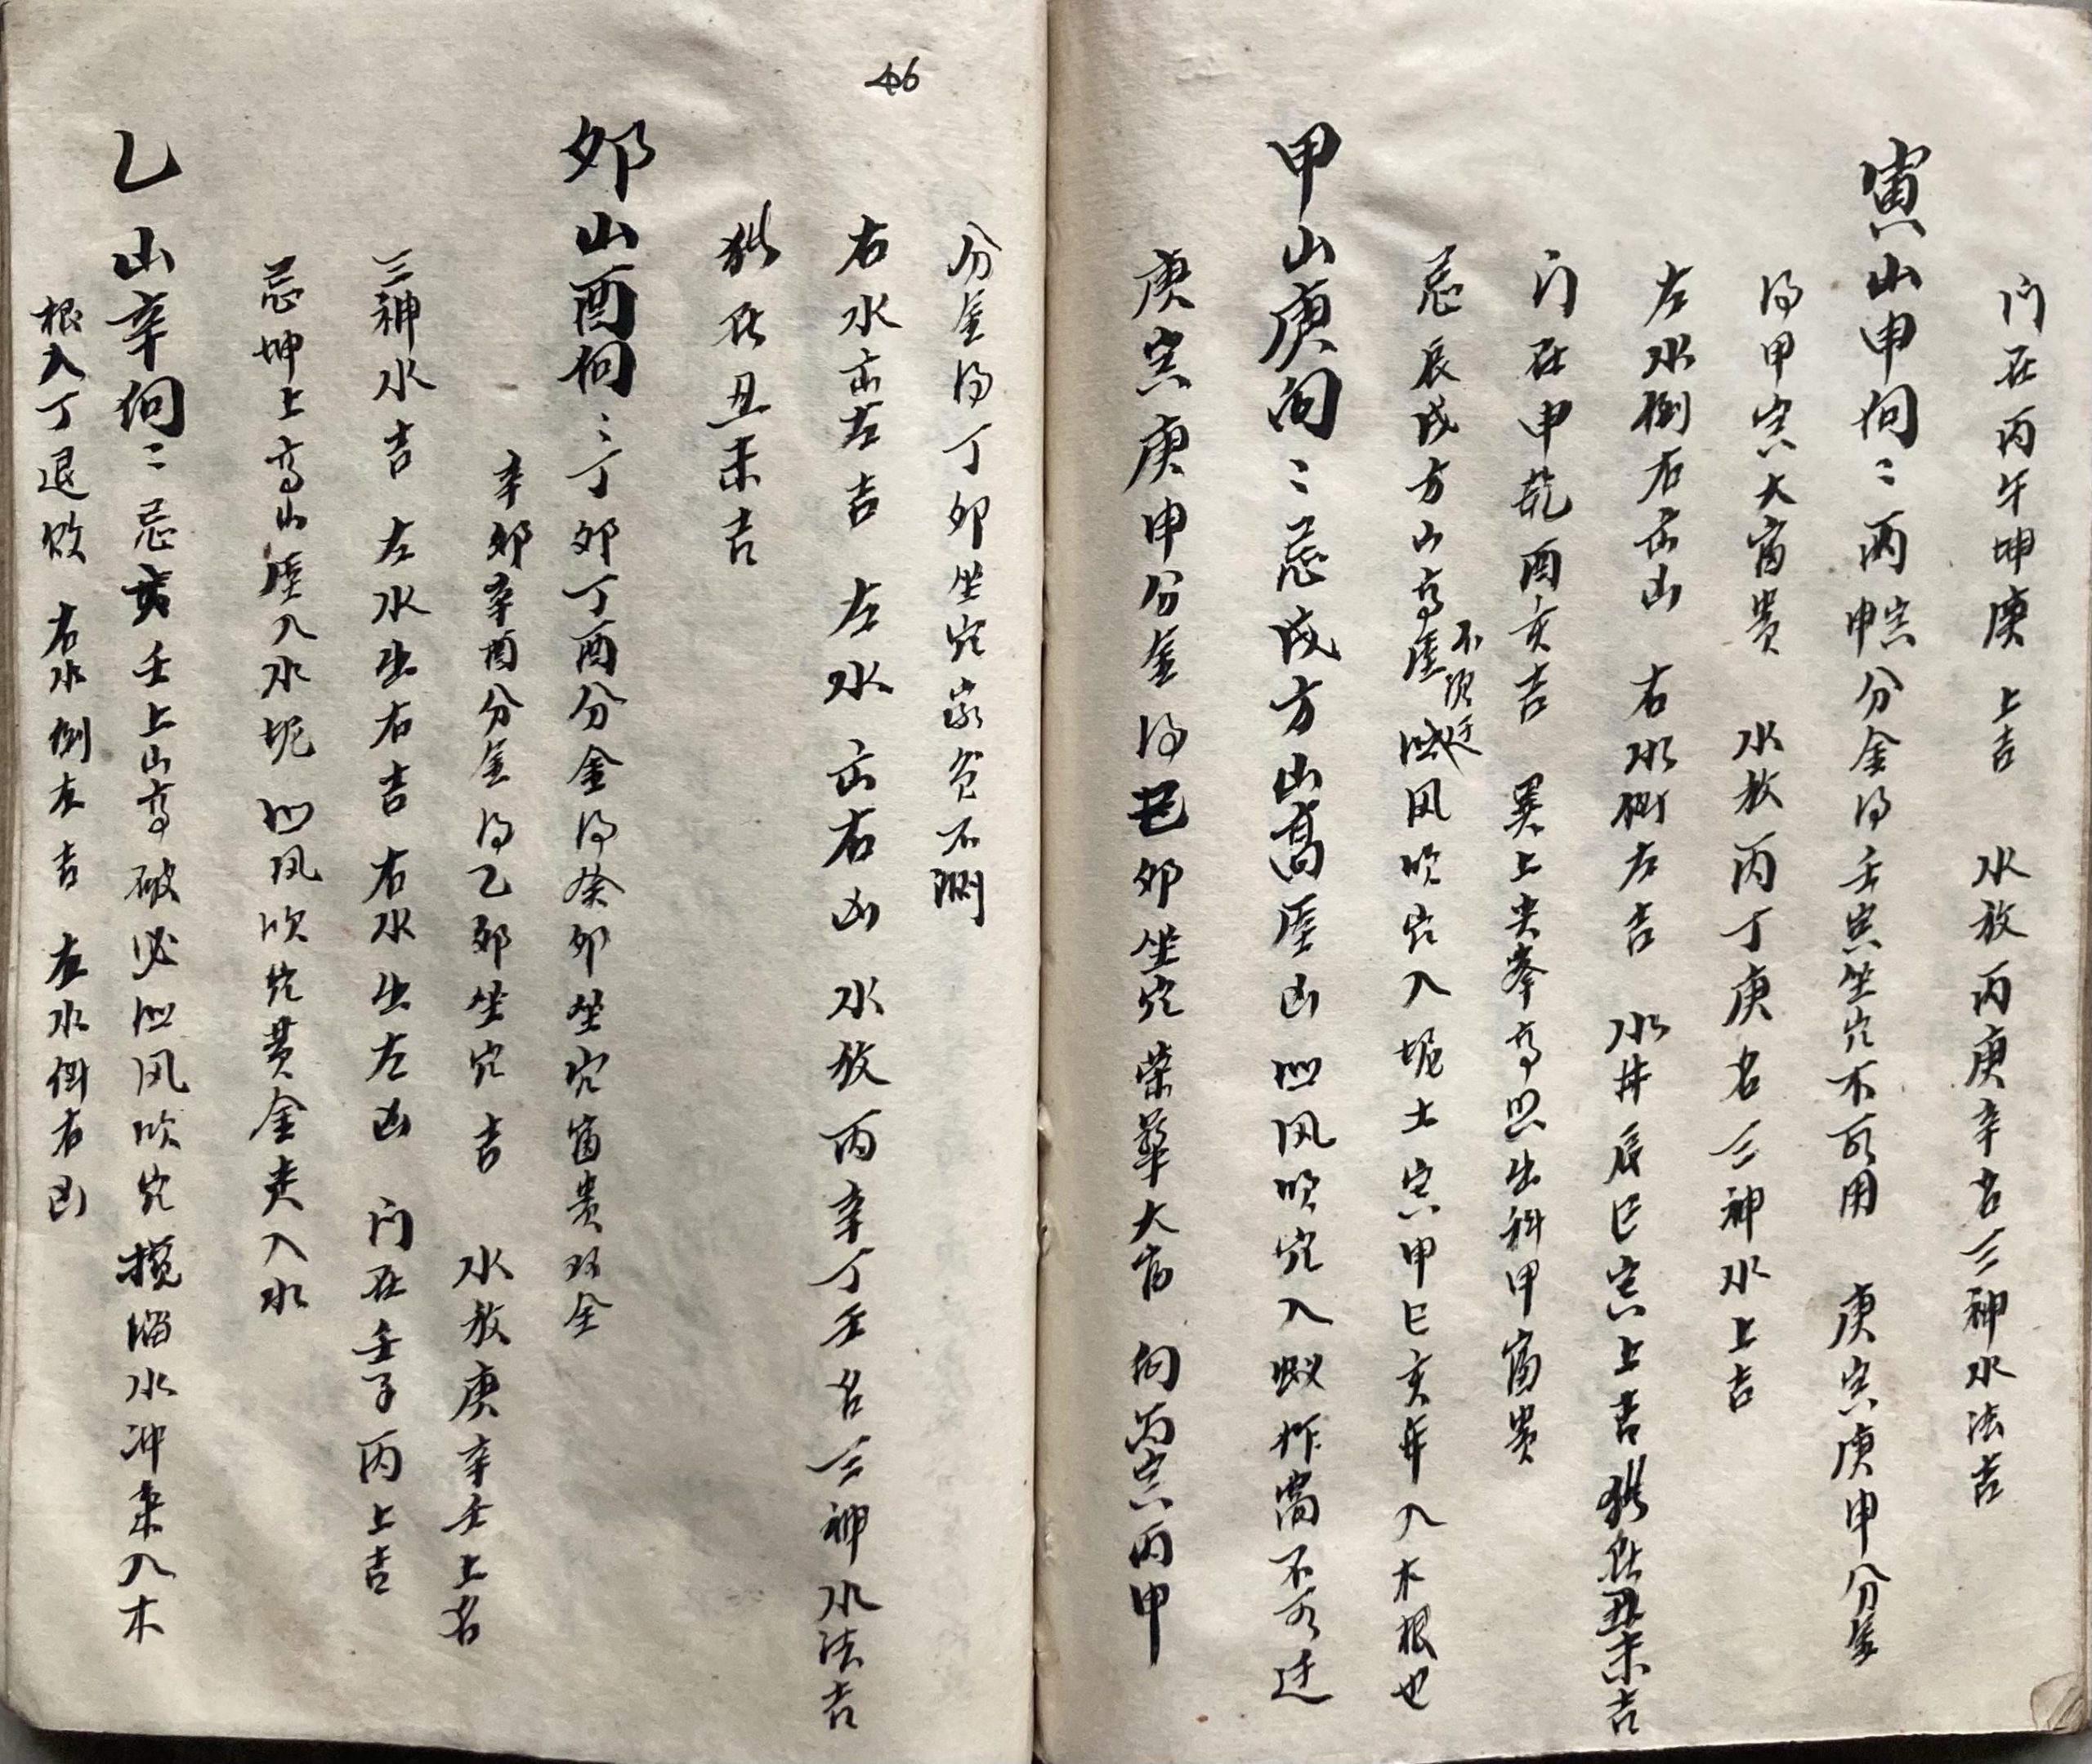 46
门在丙午坤庚 上吉 水放丙庚辛名三神水法吉
寅山申向〻丙寅丙申分金得壬寅坐穴不可用 庚寅庚申分金
得甲寅大富贵 水放丙丁庚名三神水上吉
左水倒右出凶 右水倒左吉 水井辰巳寅上吉 在丑未吉
门在申乾酉亥吉 巽上尖峯高照出科甲富贵
忌辰戌方山高 风吹穴入坭土 寅甲巳亥年入木根也
甲山庚向〻忌戌方山高 凶 凹风吹穴入蚁作窝不可迁
庚寅庚申分金得己卯坐穴荣華大富 向丙寅丙申
分金得丁卯坐穴家贫不
右水出左吉 左水出右凶 水放丙辛丁壬名三神水法吉
在丑未吉
卯山酉向〻丁卯丁酉分金得癸卯坐穴富贵双全
辛卯辛酉分金得乙卯坐穴吉 水放庚辛壬上名
三神水吉 左水出右吉 右水出左凶 门在壬子丙上吉
忌坤上高山 入水坭 凹风吹穴黄金 入水
乙山辛向〻忌 壬上山高破必凹风吹穴 水冲来入木
根人丁退败 右水倒左吉 左水倒右凶